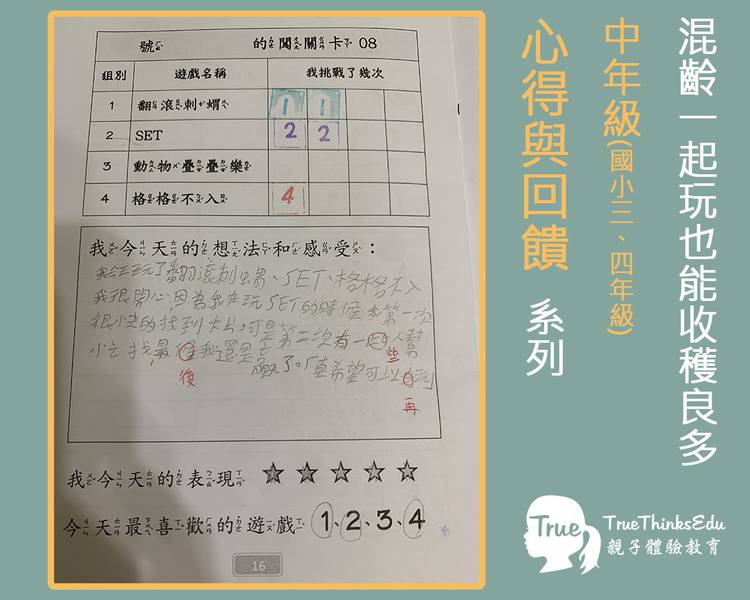 混齡一起玩也能收穫良多
中年級(國小三、四年級)
心得與回饋 系列
號 的闖關卡 08
組別 遊戲名稱 我挑戰了幾次
1 翻滾刺蝟 1 1
2 SET 2 2
3 動物疊疊樂
4 格格不入 4
我今天的想法和感受：
我今天玩了翻滾刺蝟、SET、格格不入
我很開心,因為我在玩SET的時候 第一次
很快的找到卡片,可是第二次有一些人幫
小 找,最後我還是 贏了。真希望可以再玩
我今天的表現 ☆☆☆☆☆
今天最喜歡的遊戲 1、2、3、4
16
True
TrueThinksEdu
親子體驗教育